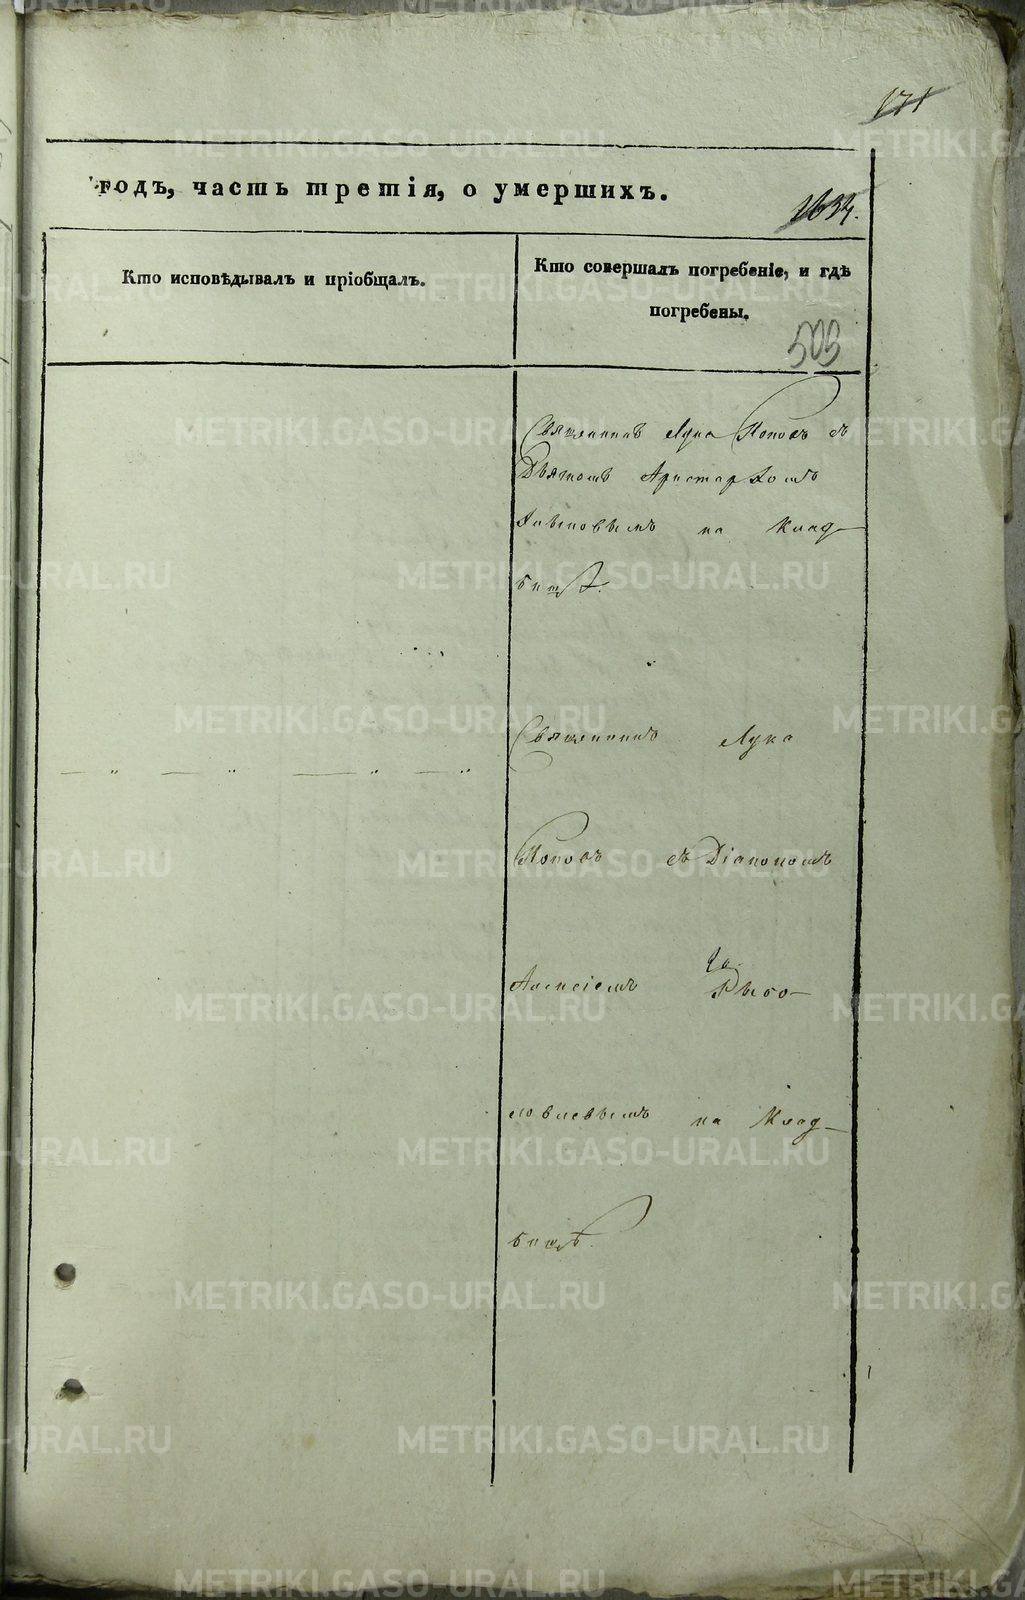 171
годъ, часть третія, о умершихъ.
1634.
Кто исповѣдывалъ и пріобщалъ.
Кто совершалъ погребеніе, и гдѣ
погребены.
503
Священникъ Лука Поповъ съ
Дьячкомъ Аристархомъ
на Клад-
бищѣ.
Священникъ Лука
Поповъ съ Діакономъ
Алексіемъ Рысо-
на Клад-
бищѣ.
METRIKI.GASO-URAL.RU